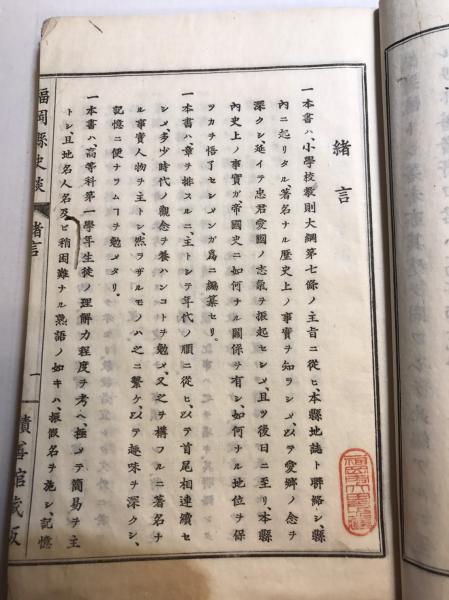 緒言
一本書ハ、小學校敎則大綱第七條ノ主旨ニ從ヒ、本縣地誌ト聯絡シ、縣
內ニ起リタル、著名ナル歷史上ノ事實ヲ知ラシメ、以テ愛鄉ノ念ヲ
深クシ、延イテ忠君愛國ノ志氣ヲ振起セシメ、且ツ後日ニ至リ、本縣
內史上ノ事實ガ、帝國史ニ如何ナル關係ヲ有シ、如何ナル地位ヲ保
ツカヲ悟了セシメンガ爲ニ編纂セリ。
一本書ハ、章ヲ排スルニ、主トシテ年代ノ順ニ從ヒ、以テ首尾相連續セ
シメ、多少時代ノ觀念ヲ養ハンコトヲ勉メ、又之ヲ構フルニ著名ナ
ル事實人物ヲ主トシ、然ラザルモノハ之ニ繫ケ、以テ趣味ヲ深クシ、
記憶ニ便ナラムヿヲ勉メタリ。
一本書ハ、高等科第一學年生徒ノ理解力程度ヲ考ヘ、極メテ簡易ヲ主
トシ、且地名人名及ビ稍困難ナル熟語ノ如キハ、振假名ヲ施シ、記憶
福岡縣史談
緒言
一
積善館藏版